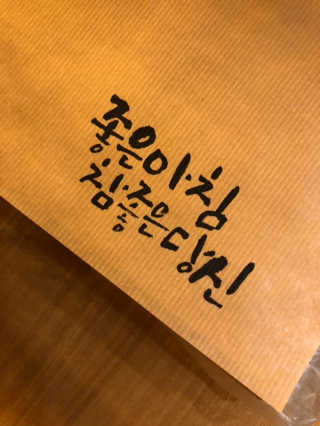 좋은아침
참좋은당신